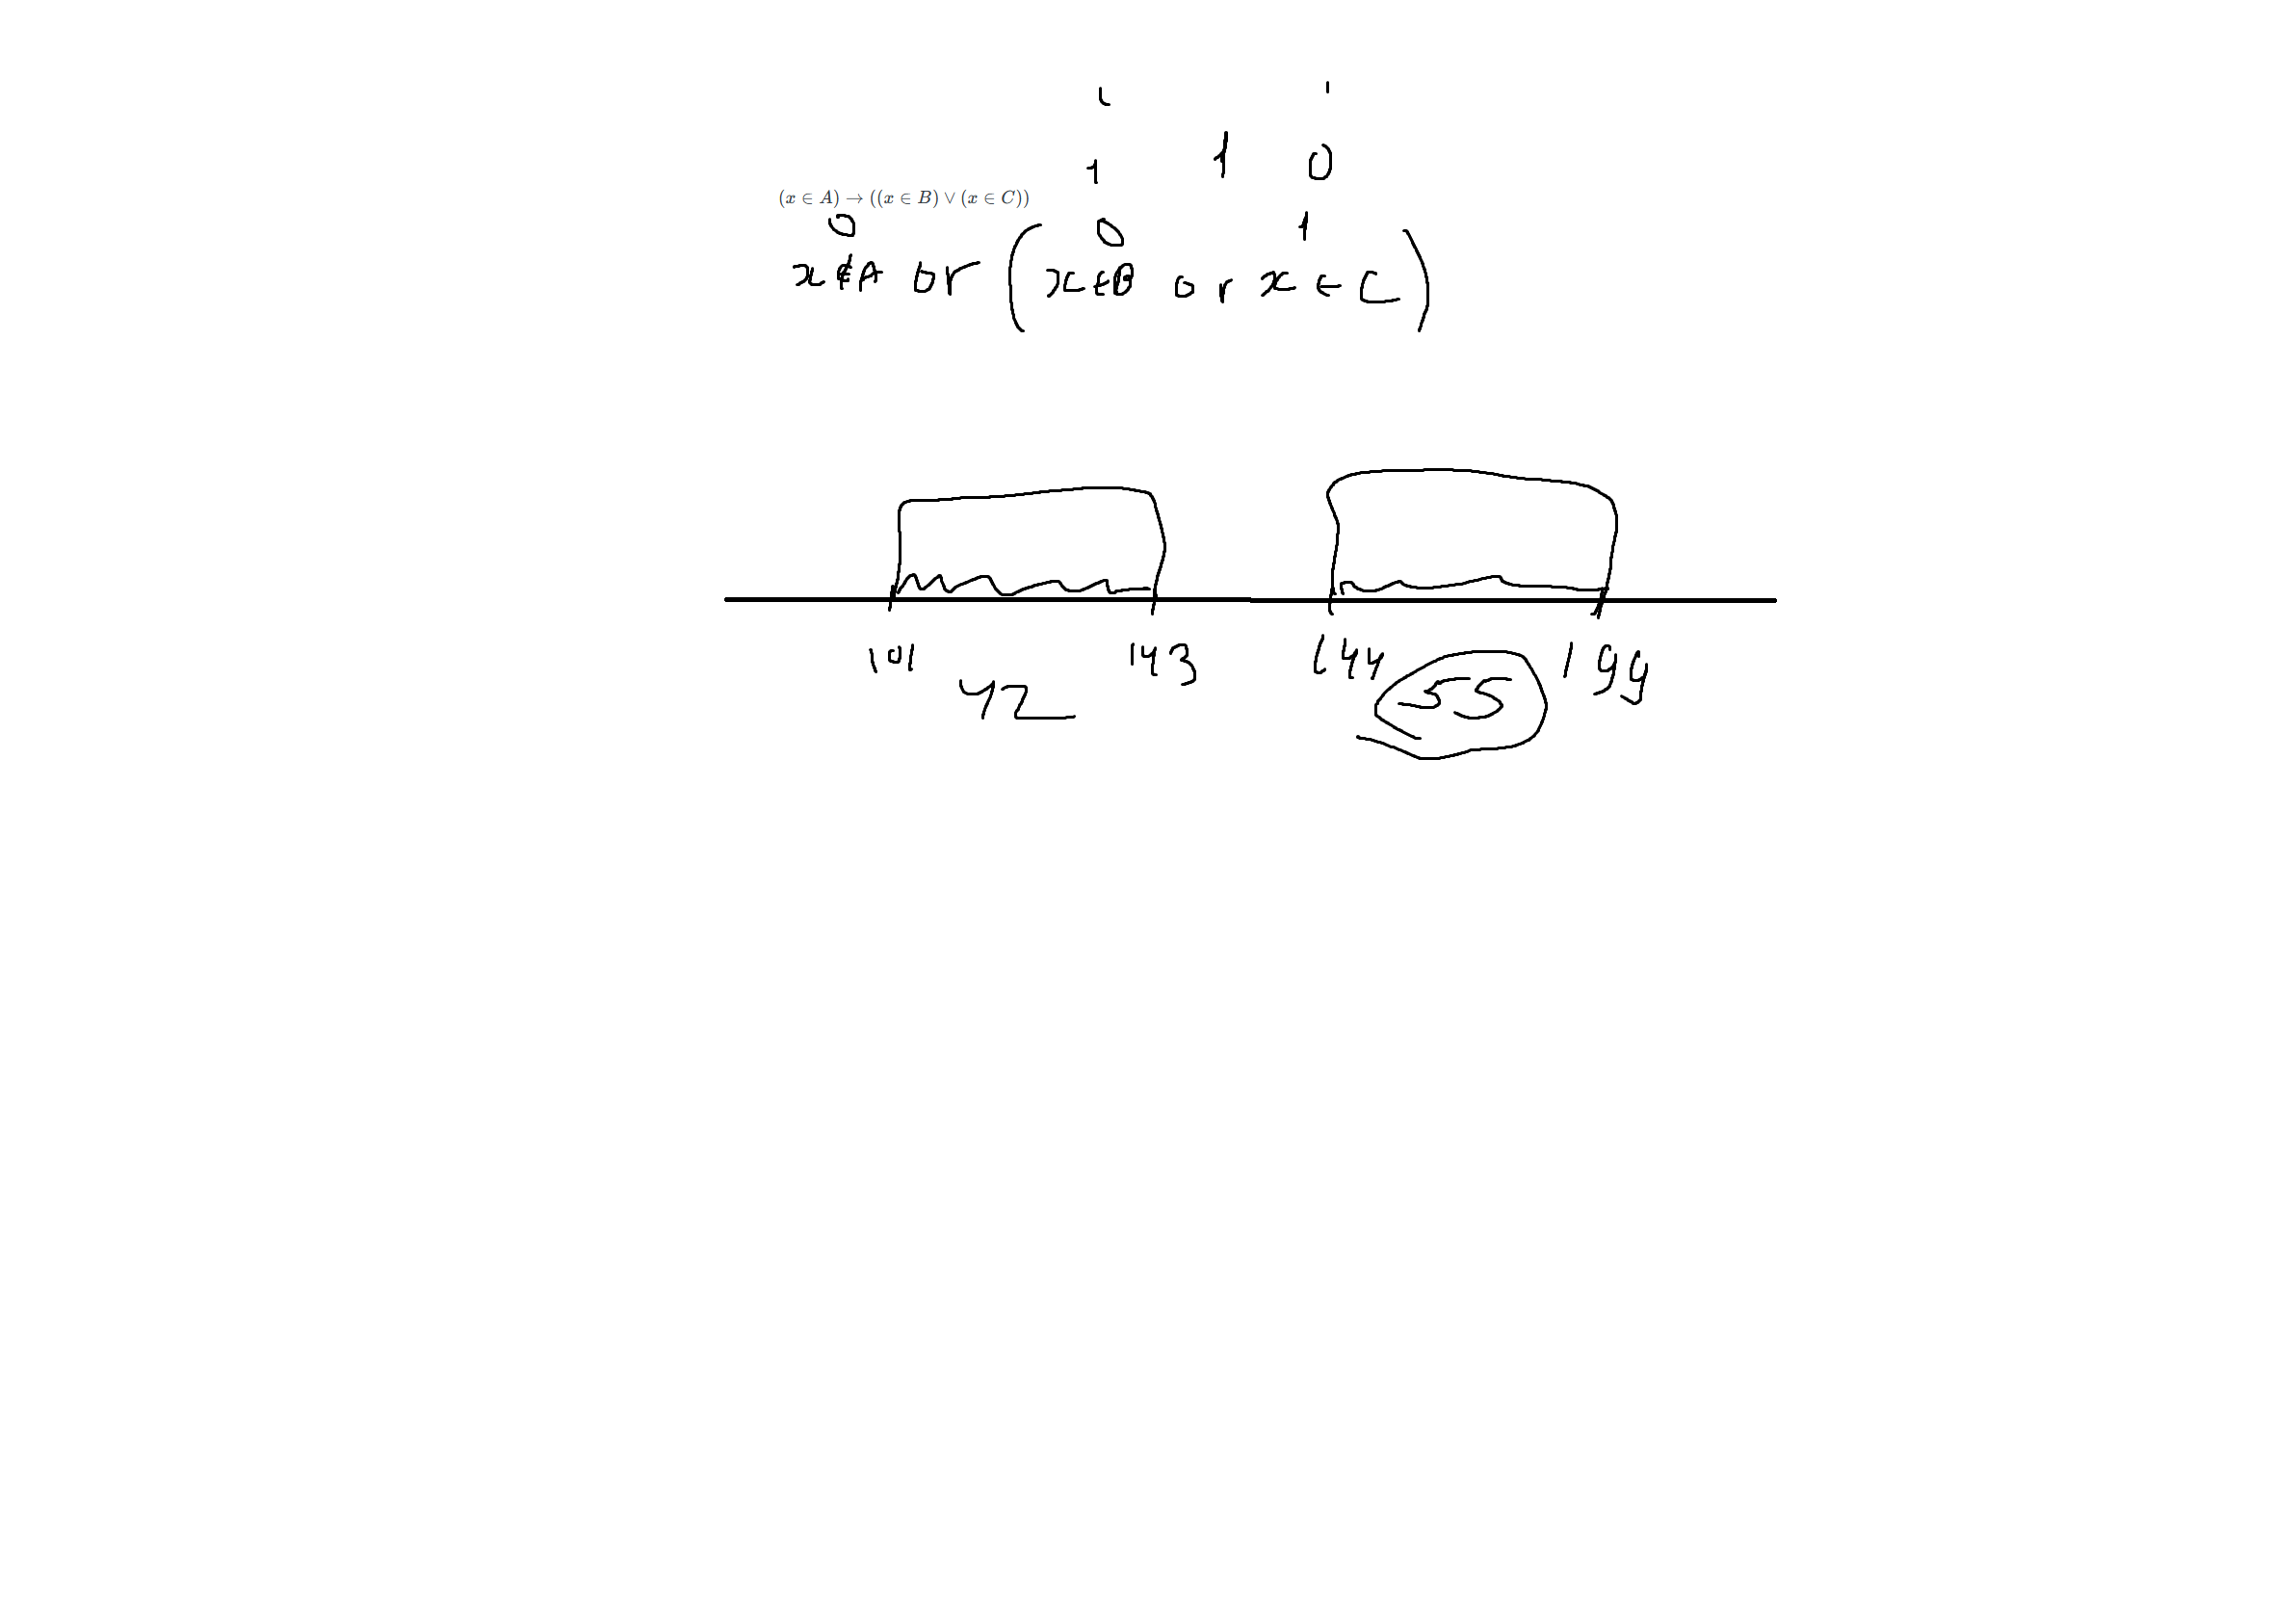 1 1
1 1 0
(x ∈ A) → ((x ∈ B) ∨ (x ∈ C))
0 0 1
x ∉ A or (x ∈ B or x ∈ C)
101 143 144 199
42 55